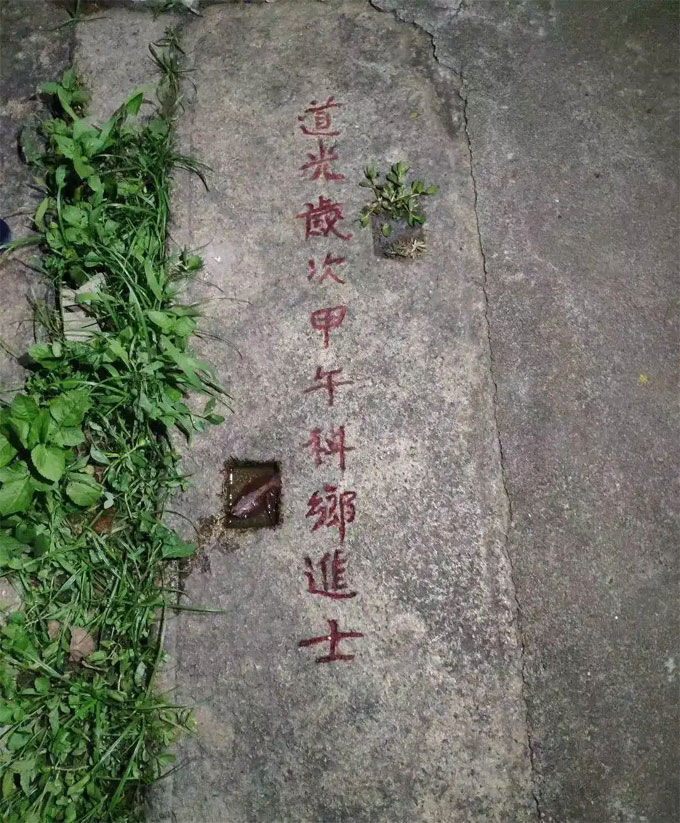 道光歲次甲午科鄉進士